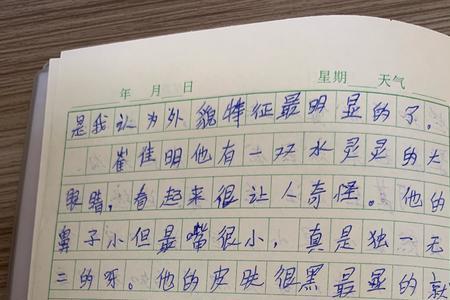 年 月 日 星期 天气
是我认为外貌特征最明显的了。
崔佳明他有一双水灵灵的大
眼睛,看起来很让人奇怪。他的
鼻子小但是嘴很小,真是独一无
二的呀。他的皮肤很黑最显的就